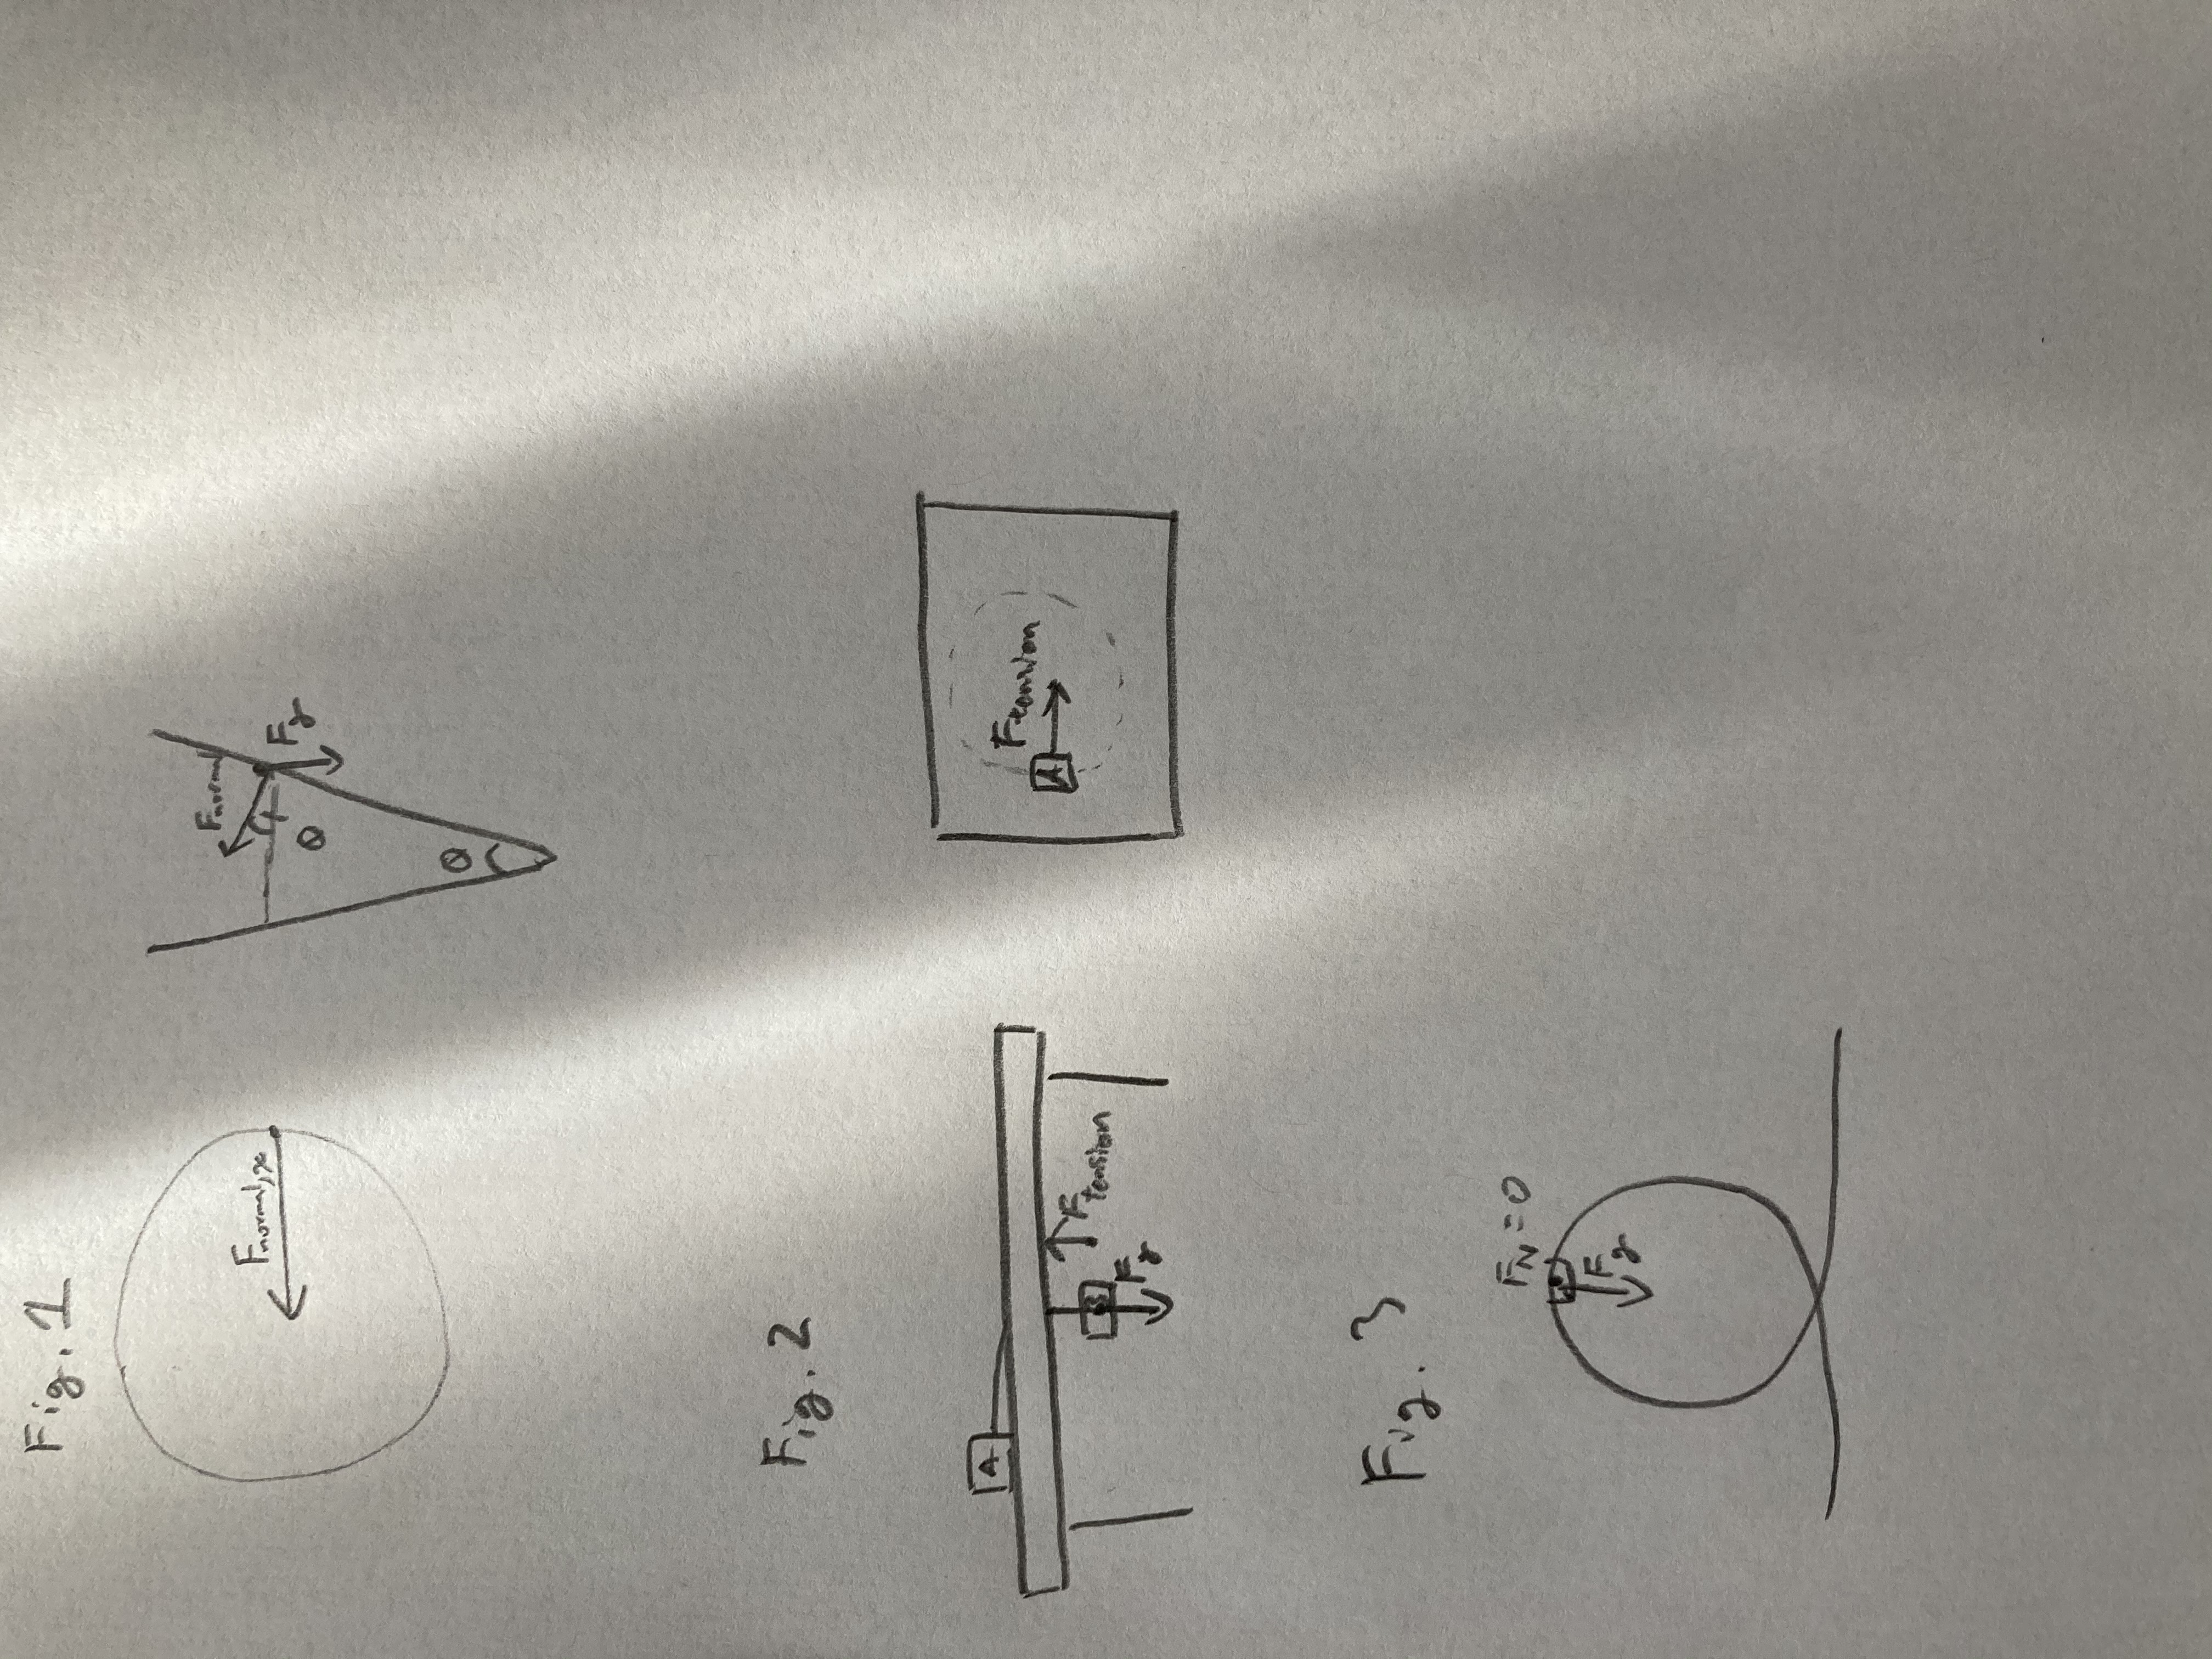 Fig. 1
Fnormal,x
Fnormal
Fg
θ
θ
Fig. 2
A
B
Ftension
Fg
Ftension
A
Fig. 3
FN=0
Fg